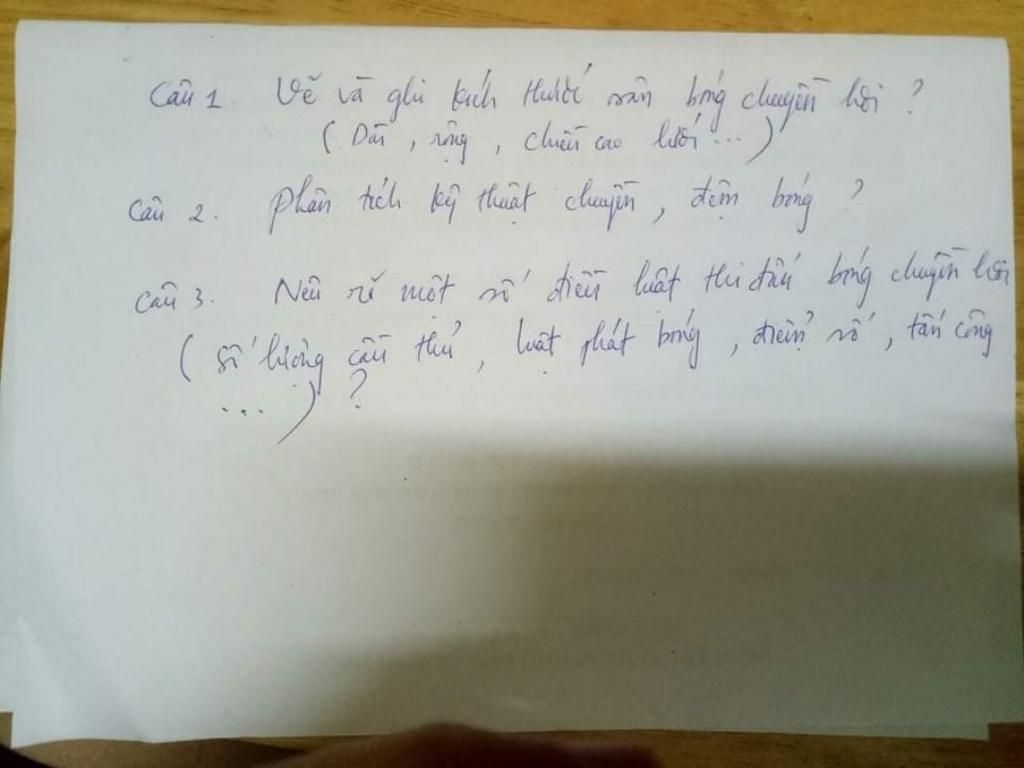 Câu 1. Vẽ và ghi kích thước sân bóng chuyền hơi ?
( Dài , rộng , chiều cao lưới ... )
Câu 2. phân tích kỹ thuật chuyền , đệm bóng ?
Câu 3. Nêu rõ một số điều luật thi đấu bóng chuyền hơi
( số lượng cầu thủ , luật phát bóng , điểm số , tấn công
... ) ?